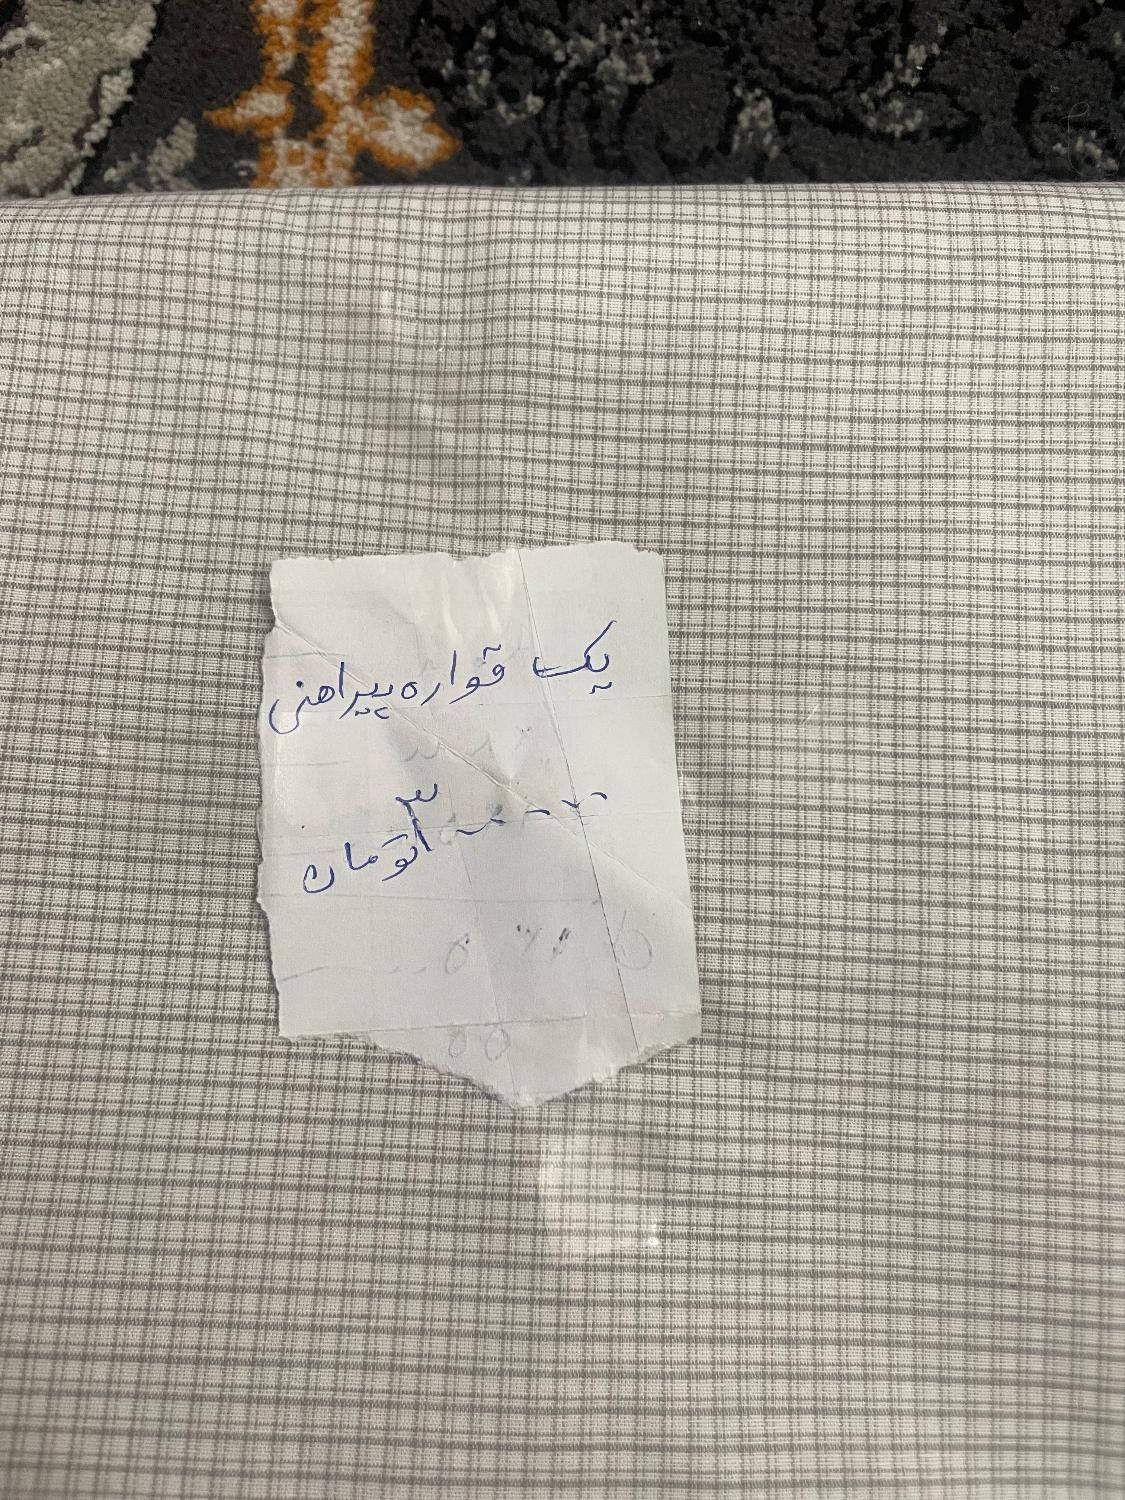 یک قواره پیراهنی
۳۰۰۰۰۰ تومان